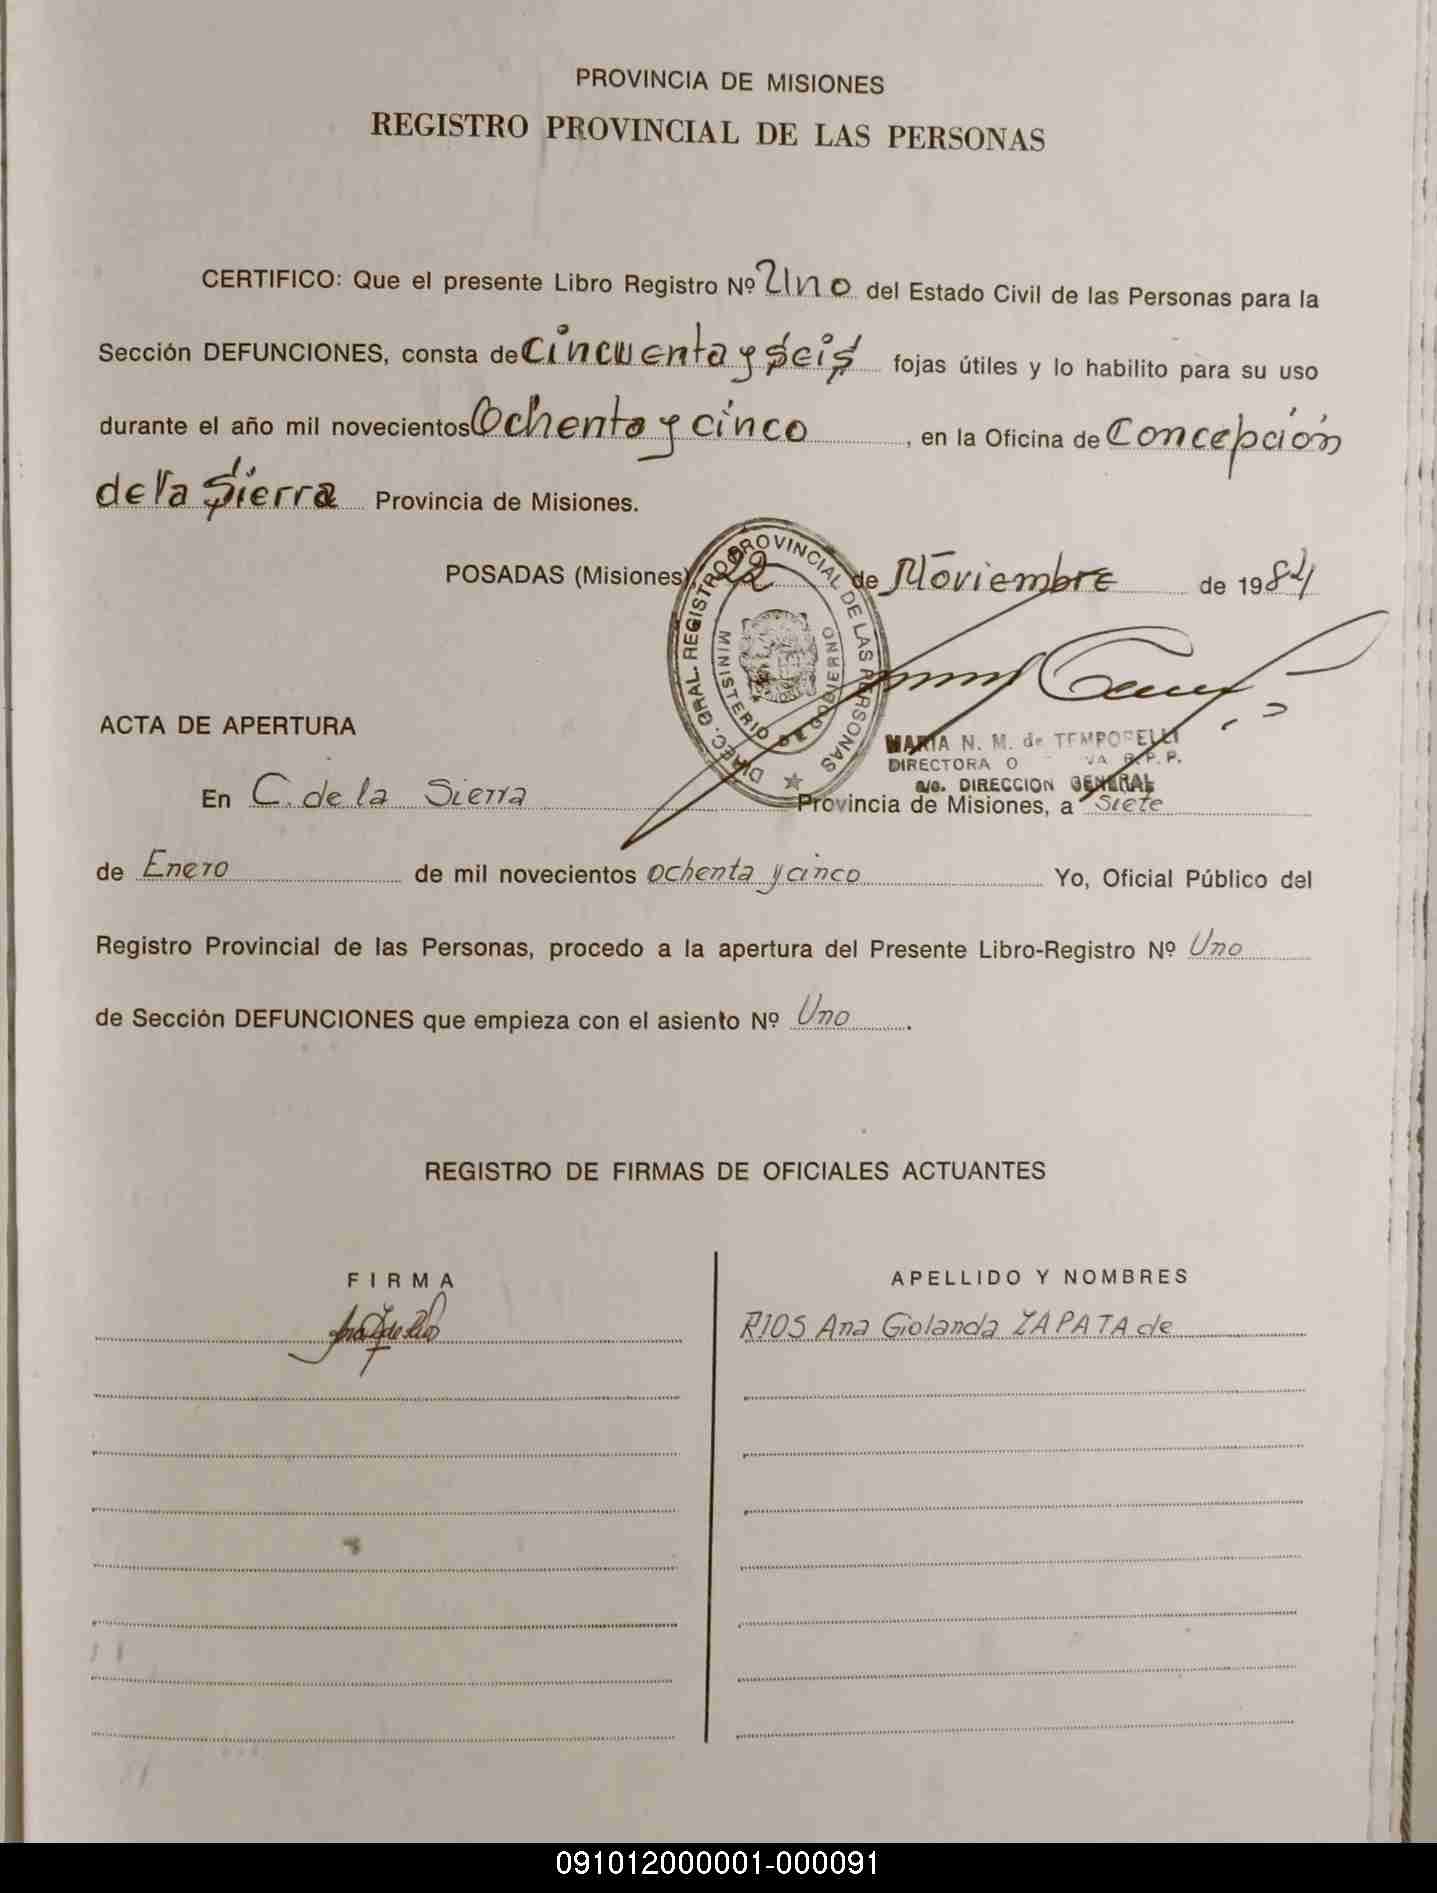 PROVINCIA DE MISIONES
REGISTRO PROVINCIAL DE LAS PERSONAS
CERTIFICO: Que el presente Libro Registro Nº Uno del Estado Civil de las Personas para la
Sección DEFUNCIONES, consta de Cincuenta y Seis fojas útiles y lo habilito para su uso
durante el año mil novecientos Ochenta y cinco, en la Oficina de Concepción
de la Sierra Provincia de Misiones.
POSADAS (Misiones), 22 de Noviembre de 1984
DIREC. GRAL. REGISTRO PROVINCIAL DE LAS PERSONAS
MINISTERIO DE GOBIERNO
MARIA N. M. de TEMPORELLI
DIRECTORA
a/c. DIRECCION GENERAL
ACTA DE APERTURA
En C. de la Sierra Provincia de Misiones, a Siete
de Enero de mil novecientos ochenta y cinco Yo, Oficial Público del
Registro Provincial de las Personas, procedo a la apertura del Presente Libro-Registro Nº Uno
de Sección DEFUNCIONES que empieza con el asiento Nº Uno.
REGISTRO DE FIRMAS DE OFICIALES ACTUANTES
FIRMA
APELLIDO Y NOMBRES
RIOS Ana Giolanda ZAPATA de
091012000001-000091